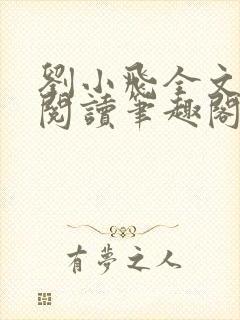 劉小飛全文
閱讀筆趣閣
有夢之人